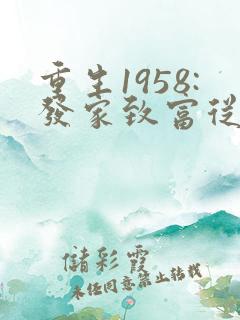 重生1958:
發家致富從
儲彩霞
未經同意禁止轉載